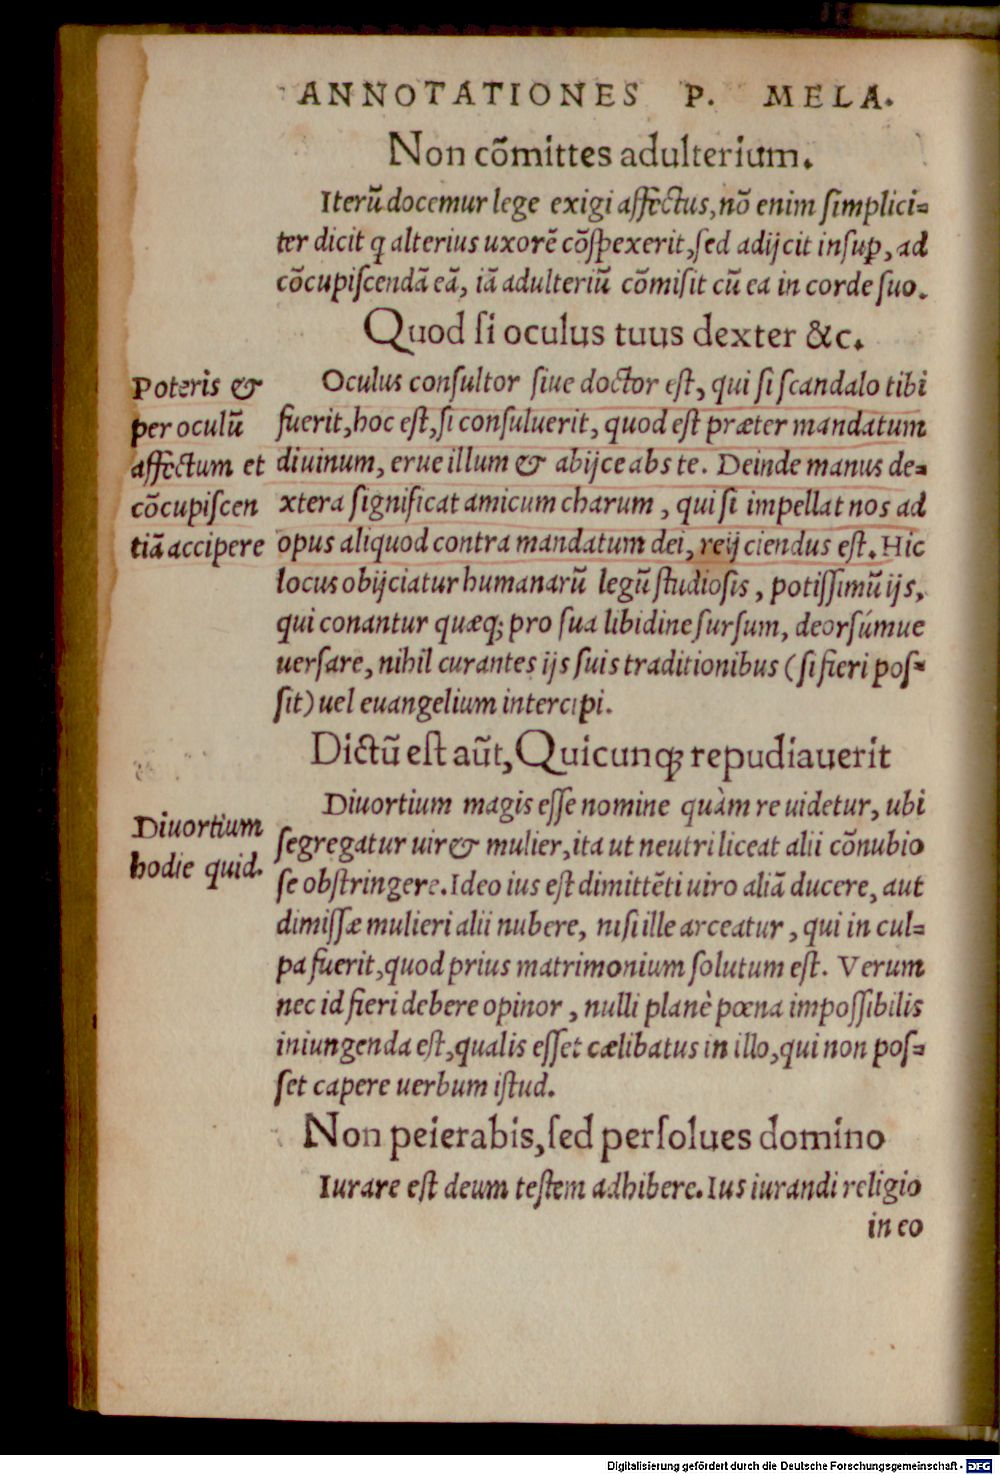 ANNOTATIONES P. MELA.
Non cõmittes adulterium.
Iterũ docemur lege exigi affectus, nõ enim simplici=
ter dicit ꝗ alterius uxorẽ cõspexerit, sed adijcit insuꝑ, ad
cõcupiscendã eã, iã adulteriũ cõmisit cũ ea in corde suo.
Quod si oculus tuus dexter &c.
Poteris &
per oculũ
affectum et
cõcupiscen
tiã accipere
Oculus consultor siue doctor est, qui si scandalo tibi
fuerit, hoc est, si consuluerit, quod est præter mandatum
diuinum, erue illum & abijce abs te. Deinde manus de=
xtera significat amicum charum, qui si impellat nos ad
opus aliquod contra mandatum dei, reijciendus est. Hic
locus obijciatur humanarũ legũ studiosis, potissimũ ijs,
qui conantur quæq; pro sua libidine sursum, deorsúmue
uersare, nihil curantes ijs suis traditionibus (si fieri pos=
sit) uel euangelium intercipi.
Dictũ est aũt, Quicunq; repudiauerit
Diuortium
hodie quid.
Diuortium magis esse nomine quàm re uidetur, ubi
segregatur uir & mulier, ita ut neutri liceat alii cõnubio
se obstringere. Ideo ius est dimittẽti uiro aliã ducere, aut
dimissæ mulieri alii nubere, nisi ille arceatur, qui in cul=
pa fuerit, quod prius matrimonium solutum est. Verum
nec id fieri debere opinor, nulli planè pœna impossibilis
iniungenda est, qualis esset cælibatus in illo, qui non pos=
set capere uerbum istud.
Non peierabis, sed persolues domino
Iurare est deum testem adhibere. Ius iurandi religio
in eo
Digitalisierung gefördert durch die Deutsche Forschungsgemeinschaft - DFG